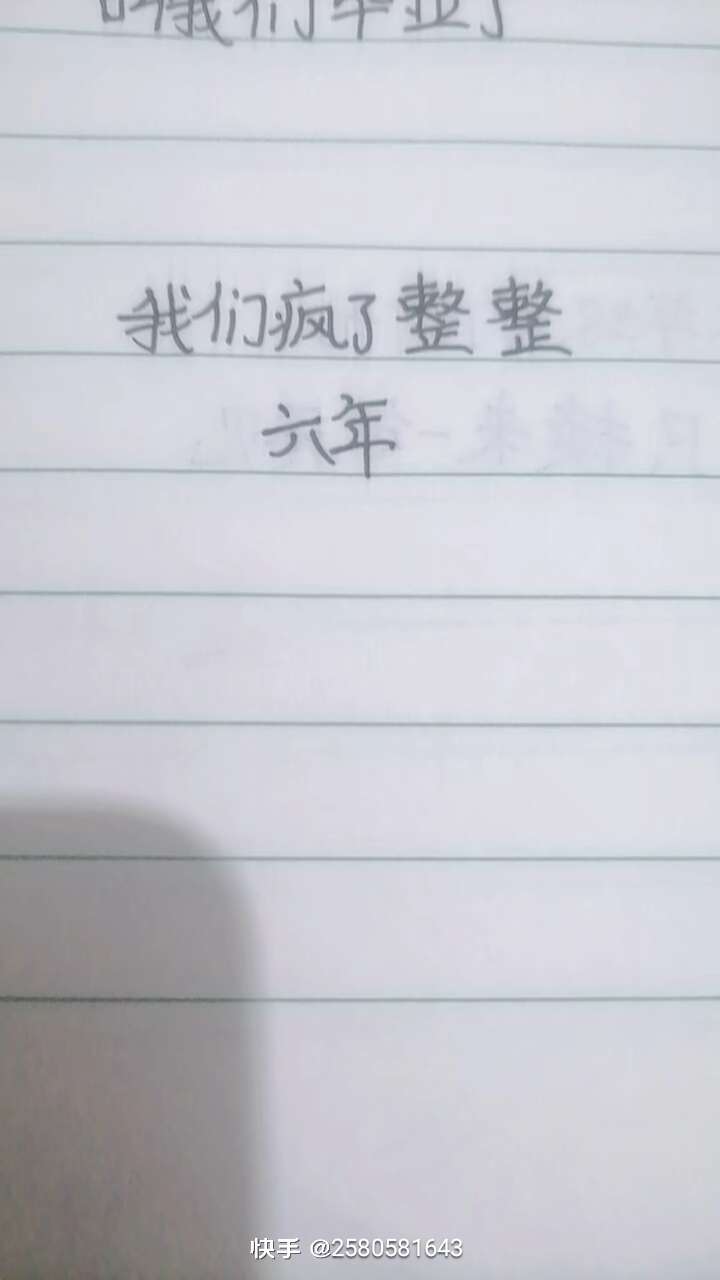 我们毕业了
我们疯了整整
六年
快手 @2580581643